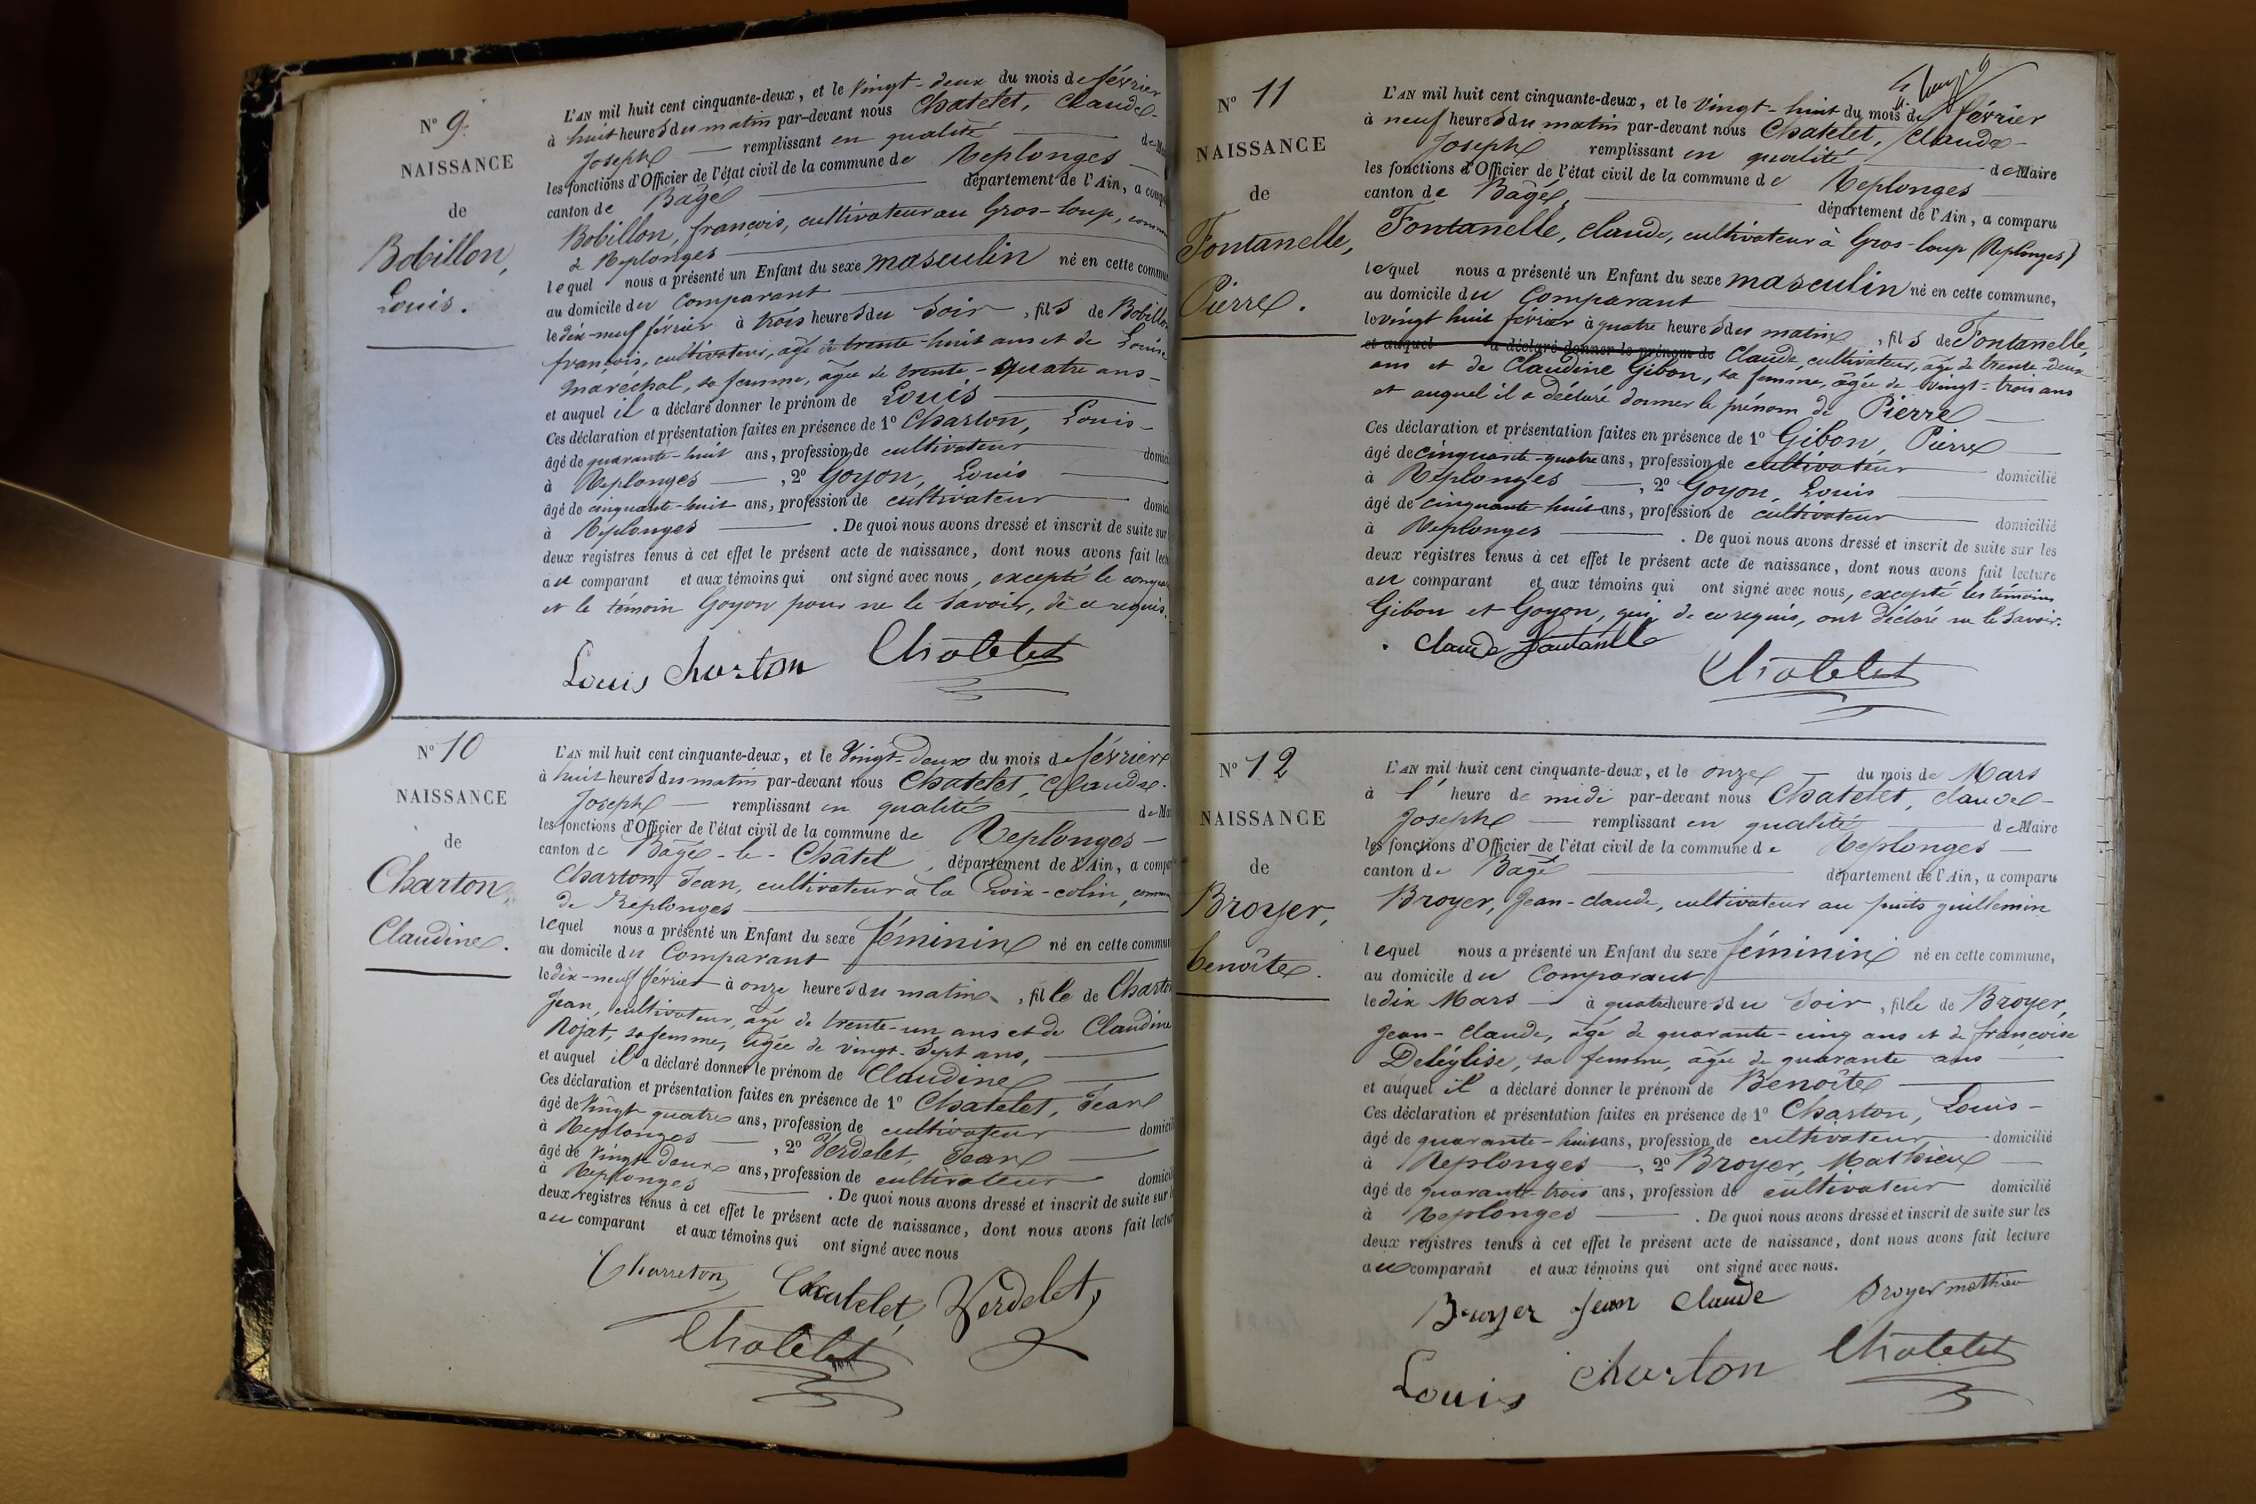 N° 9.
NAISSANCE
de
Bobillon,
Louis.
L'AN mil huit cent cinquante-deux, et le vingt-deux du mois de février
à huit heures du matin par-devant nous Chatelet, Claude-
Joseph remplissant en qualité de Ma
les fonctions d'Officier de l'état civil de la commune de Replonges
canton de Bâgé département de l'Ain, a comp
Bobillon, françois, cultivateur au Gros-loup, comm
de Replonges
lequel nous a présenté un Enfant du sexe masculin né en cette commu
au domicile du Comparant
le dix-neuf février à trois heures du soir, fils de Bobillon
françois, cultivateur, âgé de trente-huit ans et de Louise
Maréchal, sa femme, âgée de trente-quatre ans-
et auquel il a déclaré donner le prénom de Louis
Ces déclaration et présentation faites en présence de 1° Charton, Louis-
âgé de quarante-huit ans, profession de cultivateur domici
à Replonges, 2° Goyon, Louis
âgé de cinquante-huit ans, profession de cultivateur domici
à Replonges. De quoi nous avons dressé et inscrit de suite sur
deux registres tenus à cet effet le présent acte de naissance, dont nous avons fait lectu
au comparant et aux témoins qui ont signé avec nous, excepté le compa
et le témoin Goyon pour ne le savoir, de ce requis.
Louis Charton Chatelet
N° 10
NAISSANCE
de
Charton,
Claudine.
L'AN mil huit cent cinquante-deux, et le vingt-deux du mois de février
à huit heures du matin par-devant nous Chatelet, Claude-
Joseph remplissant en qualité de Ma
les fonctions d'Officier de l'état civil de la commune de Replonges-
canton de Bâgé-le-Châtel, département de l'Ain, a compa
Charton, Jean, cultivateur à la Croix-colin, commun
de Replonges
lequel nous a présenté un Enfant du sexe féminin né en cette commun
au domicile du Comparant
le dix-neuf février à onze heures du matin, fille de Charton
Jean, cultivateur, âgé de trente-un ans et de Claudine
Rojat, sa femme, âgée de vingt-sept ans,
et auquel il a déclaré donner le prénom de Claudine
Ces déclaration et présentation faites en présence de 1° Chatelet, Jean
âgé de vingt-quatre ans, profession de cultivateur domicili
à Replonges, 2° Verdelet, Jean
âgé de vingt-deux ans, profession de cultivateur domicil
à Replonges. De quoi nous avons dressé et inscrit de suite sur l
deux registres tenus à cet effet le présent acte de naissance, dont nous avons fait lectur
au comparant et aux témoins qui ont signé avec nous
Charreton Chatelet Verdelet
Chatelet
N° 11
NAISSANCE
de
Fontanelle,
Pierre.
L'AN mil huit cent cinquante-deux, et le vingt-huit du mois de février
à neuf heures du matin par-devant nous Chatelet, Claude-
Joseph remplissant en qualité de Maire
les fonctions d'Officier de l'état civil de la commune de Replonges
canton de Bâgé, département de l'Ain, a comparu
Fontanelle, Claude, cultivateur à Gros-loup (Replonges)
lequel nous a présenté un Enfant du sexe masculin né en cette commune,
au domicile du Comparant
le vingt huit février à quatre heures du matin, fils de Fontanelle,
et auquel a déclaré donner le prénom de Claude, cultivateur, âgé de trente-deux
ans et de Claudine Gibon, sa femme, âgée de vingt-trois ans
et auquel il a déclaré donner le prénom de Pierre
Ces déclaration et présentation faites en présence de 1° Gibon, Pierre
âgé de cinquante-quatre ans, profession de cultivateur domicilié
à Replonges, 2° Goyon, Louis
âgé de cinquante-huit ans, profession de cultivateur domicilié
à Replonges. De quoi nous avons dressé et inscrit de suite sur les
deux registres tenus à cet effet le présent acte de naissance, dont nous avons fait lecture
au comparant et aux témoins qui ont signé avec nous, excepté les témoins
Gibon et Goyon, qui, de ce requis, ont déclaré ne le savoir.
Claude Fontanelle
Chatelet
N° 12
NAISSANCE
de
Broyer,
benoîte.
L'AN mil huit cent cinquante-deux, et le onze du mois de Mars
à l'heure de midi par-devant nous Chatelet, Claude-
Joseph remplissant en qualité de Maire
les fonctions d'Officier de l'état civil de la commune de Replonges
canton de Bâgé département de l'Ain, a comparu
Broyer, Jean-claude, cultivateur au puits guillemin
lequel nous a présenté un Enfant du sexe féminin né en cette commune,
au domicile du Comparant
le dix Mars à quatre heures du soir, fille de Broyer,
Jean-Claude, âgé de quarante-cinq ans et de françoise
Deléglise, sa femme, âgée de quarante ans
et auquel il a déclaré donner le prénom de Benoîte
Ces déclaration et présentation faites en présence de 1° Charton, Louis-
âgé de quarante-huit ans, profession de cultivateur domicilié
à Replonges, 2° Broyer, Mathieu
âgé de quarante-trois ans, profession de cultivateur domicilié
à Replonges. De quoi nous avons dressé et inscrit de suite sur les
deux registres tenus à cet effet le présent acte de naissance, dont nous avons fait lecture
au comparant et aux témoins qui ont signé avec nous.
Broyer Jean Claude Broyer mathieu
Louis Charton Chatelet